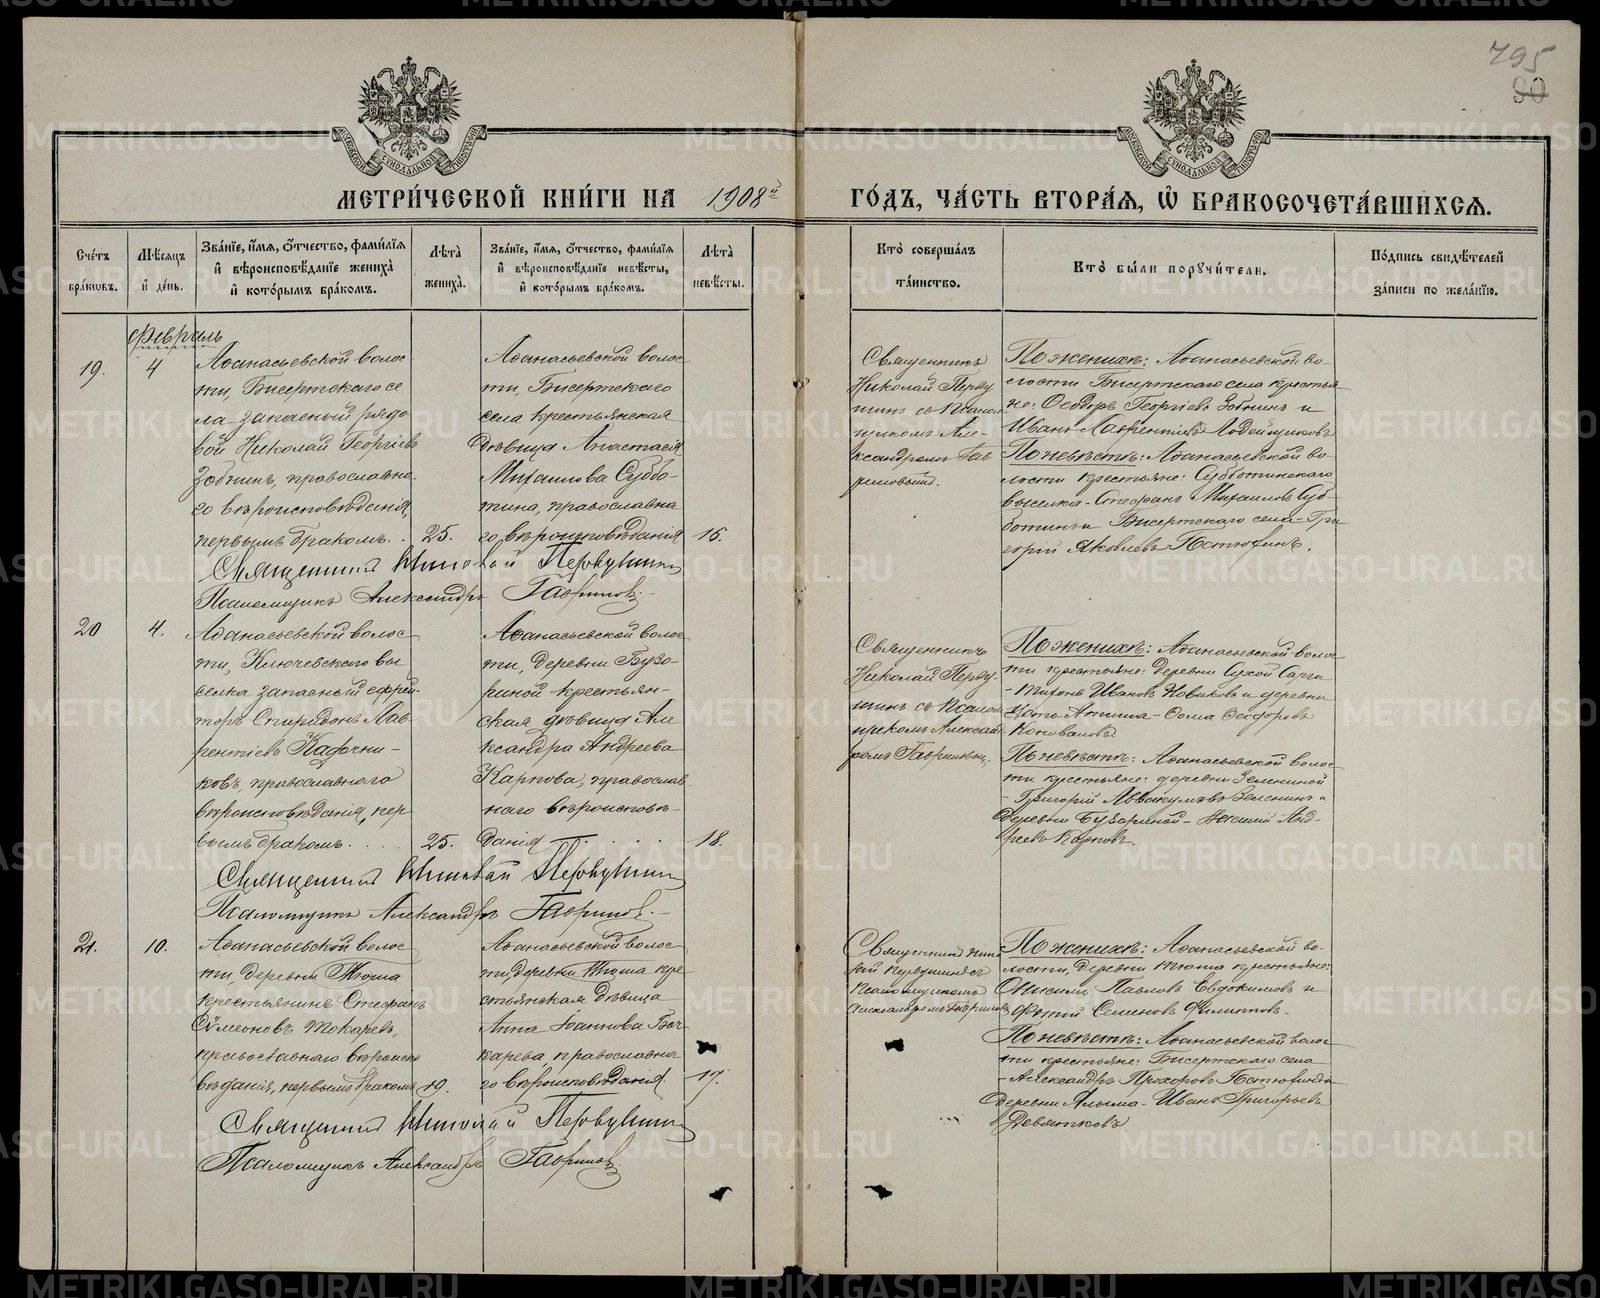 795
90
МЕТРИ́ЧЕСКОЙ КНИ́ГИ НА 1908й ГО́ДЪ, ЧА́СТЬ ВТОРА́Я, Ѽ БРАКОСОЧЕТА́ВШИХСЯ.
Сче́тъ бра́ковъ.
Мѣ́сяцъ и҆ де́нь.
Зва́нїе, и҆́мя, ѻ҆́тчество, фами́лїя и҆ вѣроисповѣ́данїе жениха̀ и҆ кото́рымъ бра́комъ.
Лѣ́та̀ жениха̀.
Зва́нїе, и҆́мя, ѻ҆́тчество, фами́лїя и҆ вѣроисповѣ́данїе невѣ́сты, и҆ кото́рымъ бра́комъ.
Лѣ́та̀ невѣ́сты.
Кто̀ соверша́лъ та́инство.
Кто̀ бы́ли порꙋчи́тели.
По́дпись свидѣ́телей за́писи по жела́нїю.
Февраль
19.
4
Аѳанасьевской волос
ти, Бисертскаго се
ла запасный рядо
вой Николай Георгіевъ
Зобнинъ, православна
го вѣроисповѣданія,
первымъ бракомъ.
25.
Аѳанасьевской волос
ти, Бисертскаго
села крестьянская
дѣвица Анастасія
Михаилова Суббо-
тина, православна
го, вѣроисповѣданія
16.
Священникъ
Николай Перву
шинъ съ псалом
щикомъ Але-
ксандромъ Гав
риловымъ.
По женихѣ: Аѳанасьевской во
лости Бисертскаго села крестья
не: Ѳеодоръ Георгіевъ Зобнинъ и
Иванъ Лаврентіевъ Лодейщиковъ
По невѣстѣ: Аѳанасьевской во
лости крестьяне: Субботинскаго
выселка-Стефанъ Михаиловъ Суб-
ботинъ и Бисертскаго села-Гри
горій Яковлевъ Постюфинъ.
Священникъ Николай Первушинъ
Псаломщикъ Александръ Гавриловъ.
20
4.
Аѳанасьевской волос
ти, Ключевскаго вы
селка запасный ефрей-
торъ Спиридонъ Лав-
рентіевъ Кадочни-
ковъ, православнаго
вѣроисповѣданія, пер
вымъ бракомъ.
25.
Аѳанасьевской волос
ти, деревни Бузо-
риной крестьян-
ская дѣвица Але
ксандра Андреева
Карпова, православ
наго вѣроисповѣ-
данія
18.
Священникъ
Николай Перву
шинъ съ псалом
щикомъ Александ
ромъ Гавриловым.
По женихѣ: Аѳанасьевской волос
ти крестьяне: деревни Сухой Сарги
- Тихонъ Ивановъ Новиковъ и деревни
Усть-Атига - Ѳома Ѳеодоровъ
Коноваловъ.
По невѣстѣ: Аѳанасьевской волос
ти крестьяне: деревни Зелениной
- Григорій Аввакумовъ Зеленинъ и
деревни Бузориной - Анд-
реевъ Карповъ.
Священникъ Николай Первушинъ
Псаломщикъ Александръ Гавриловъ.
21.
10.
Аѳанасьевской волос
ти, деревни Тюша
крестьянинъ Стефанъ
Сѵмеоновъ Токаревъ,
православнаго вѣроиспо
вѣданія, первымъ бракомъ
19.
Аѳанасьевской волос
ти, деревни Тюша кре
стьянская дѣвица
Анна Іоаннова Боч
карева православна
го вѣроисповѣданія.
17.
Священникъ Нико
лай Первушинъ съ
псаломщикомъ
Александромъ Гавриловымъ
По женихѣ: Аѳанасьевской во-
лости, деревни Тюша крестьяне:
Онисимъ Павловъ Евдокимовъ и
Фотій Семеновъ Филипповъ.
По невѣстѣ: Аѳанасьевской волос
ти крестьяне: Бисертскаго села
- Александръ Прохоровъ Постюфинъ и
деревни Алыма - Иванъ Григорьевъ
Девятковъ
Священникъ Николай Первушинъ
Псаломщикъ Александръ Гавриловъ.
METRIKI.GASO-URAL.RU